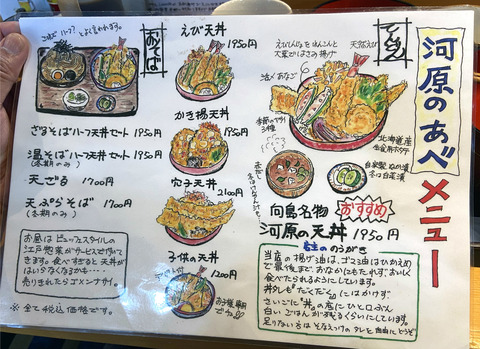 河原のあべ
メニュー
てんぷら
えびしんじょをれんこんと
大葉ではさみの揚げ
天然えび
活〆あなご
季節のヤサイ
3種
北海道産
生食用ホタテ
自家製ぬか漬
冬は白菜漬
向島名物
おすすめ
河原の天丼 1950円
店主ののうがき
当店の揚げ油は、ゴマ油はひかえめ
で最後まで、おなかにもたれず、おいしく
食べられるようにしています。
丼タレも"だくだく"にはかけず、
さいごに"丼"の底にひと口ぶん
白いごはんがのこるくらいにしています。
足りない方はそなえつけのタレを自由にどうぞ
えび天丼
1950円
かき揚天丼
1950円
穴子天丼
2100円
子供の天丼
1200円
おそば
とよく言われます。
ざるそばハーフ天丼セット 1950円
温そばハーフ天丼セット 1950円
(冬期のみ)
天ざる 1700円
天ぷらそば 1700円
(冬期のみ)
お昼はビュッフェスタイルの
江戸惣菜がサービスで付いて
きます。食べすぎると天丼が
はいらなくなるかも・・・・
売りきれたらゴメンナサイ。
※全て税込価格です。